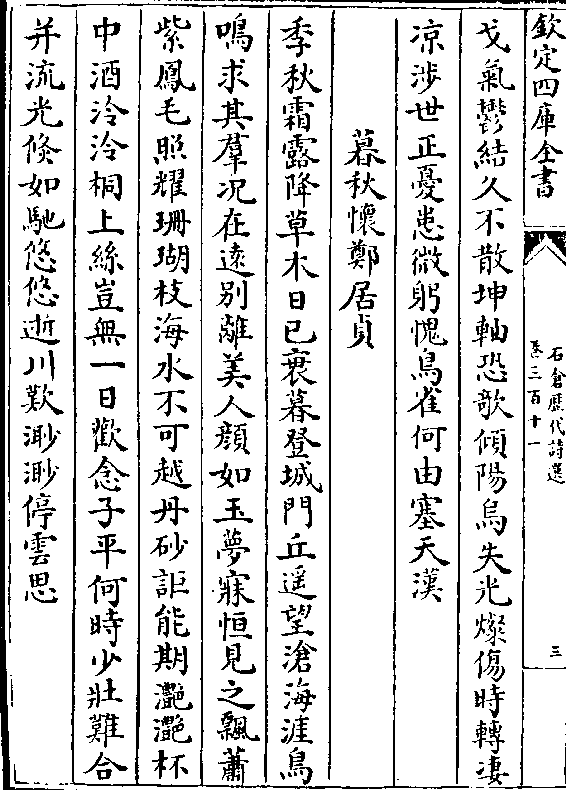 欽定四庫全書
石倉歷代詩選
卷三百十一
三
戈氣鬱結久不散坤軸恐欹傾陽烏失光燦傷時轉凄
凉涉世正憂患微躬愧鳥雀何由塞天漢
暮秋懷鄭居貞
季秋霜露降草木日已衰暮登城門丘遥望滄海涯鳥
鳴求其羣况在逺别離美人顔如玉夢寐恒見之飄蕭
紫鳳毛照耀珊瑚枝海水不可越丹砂詎能期灧灧杯
中酒泠泠桐上絲豈無一日歡念子平何時少壯難合
并流光倐如馳悠悠逝川歎渺渺停雲思